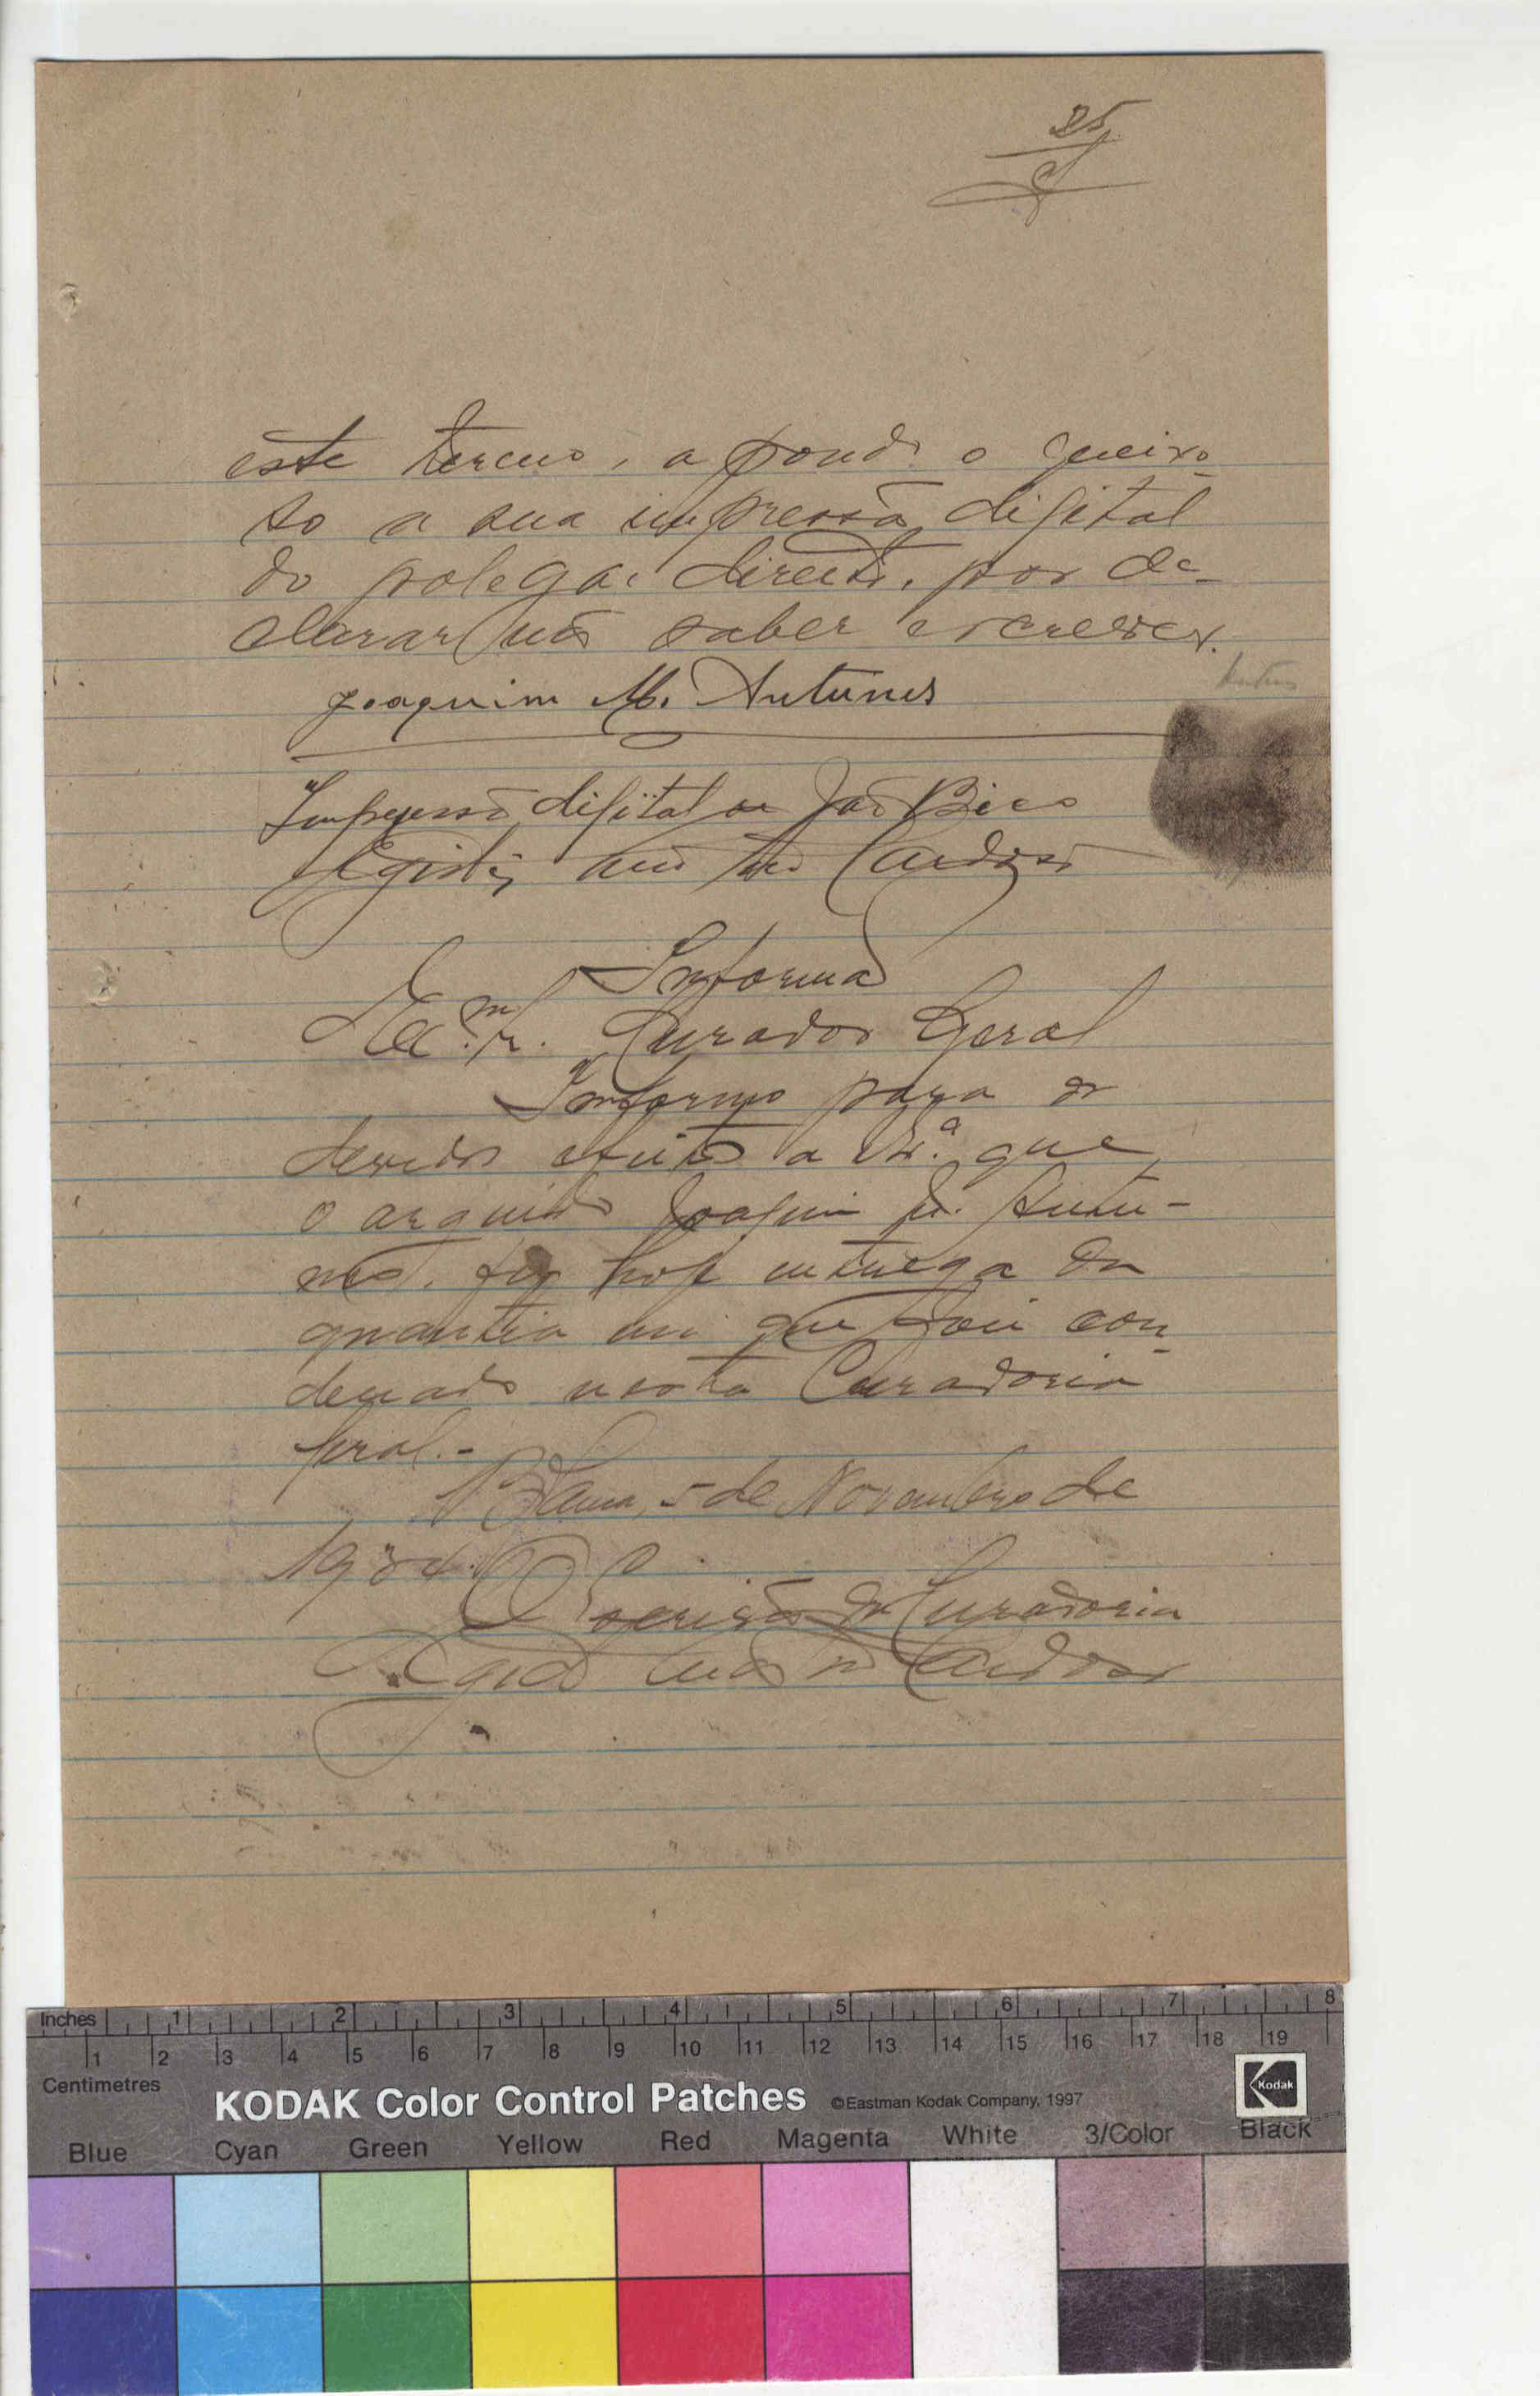 25
este termo, apondo o queixo-
so a sua impressão digital
do polegar direito, por de-
clarar não saber escrever.
Joaquim M. Antunes
Impressão digital de João Bico
Cardoso
Informação
Exmo. Sr. Curador Geral
Informo para os
devidos efeitos a V. Exa. que
o arguido Joaquim M. Antu-
nes, fez hoje entrega da
quantia em que foi con-
denado nesta Curadoria
Geral.-
5 de Novembro de
193
O Escrivão da Curadoria
Cardoso
Inches 1 2 3 4 5 6 7 8
1 2 3 4 5 6 7 8 9 10 11 12 13 14 15 16 17 18 19
Centimetres
KODAK Color Control Patches ©Eastman Kodak Company, 1997 Kodak
Blue Cyan Green Yellow Red Magenta White 3/Color Black